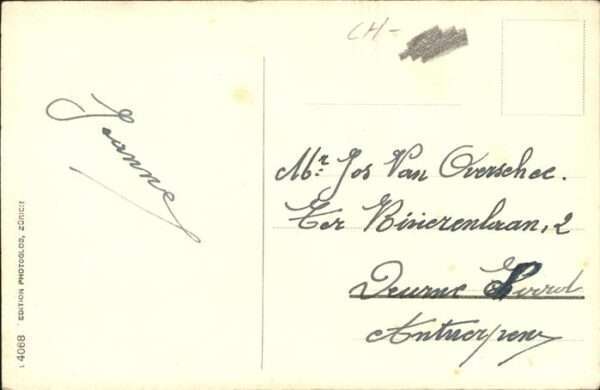 CH-
Jeanne
Mr. Jos Van Overschee.
Ter Rivierenlaan, 2
Deurne
Antwerpen
EDITION PHOTOGLOB, ZÜRICH
4068